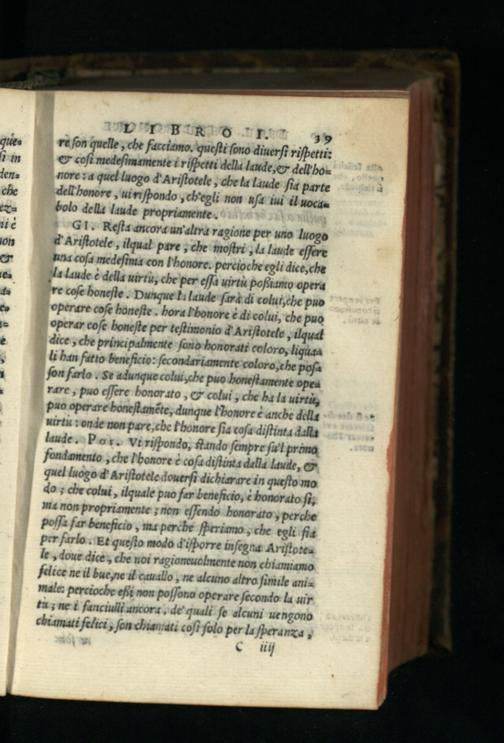 LIBRO I. 39
re son quelle, che facciamo. questi sono diuersi rispetti:
& così medesimamente i rispetti della laude, & dell'ho-
nore: a quel luogo d'Aristotele, che la laude sia parte
dell'honore, ui rispondo, ch'egli non usa iui il uoca-
bolo della laude propriamente.
GI. Resta ancora un'altra ragione per uno luogo
d'Aristotele, ilqual pare, che mostri, la laude essere
una cosa medesima con l'honore. percioche egli dice, che
la laude è della uirtù, che per essa uirtù possiamo opera
re cose honeste. Dunque la laude sarà di colui, che puo
operare cose honeste. hora l'honore è di colui, che può
operar cose honeste per testimonio d'Aristotele, ilqual
dice, che principalmente sono honorati coloro, liqua-
li han fatto beneficio: secondariamente coloro, che possa
son farlo. Se adunque colui, che può honestamente ope
rare, puo essere honorato, & colui, che ha la uirtù,
puo operare honestamēte, dunque l'honore è anche della
uirtù: onde non pare, che l'honore sia cosa distinta dalla
laude. POR. Vi rispondo, stando sempre su'l primo
fondamento, che l'honore è cosa distinta dalla laude, &
quel luogo d'Aristotele douersi dichiarare in questo mo
do; che colui, ilquale puo far beneficio, è honorato sì,
ma non propriamente; non essendo honorato, perche
possa far beneficio, ma perche speriamo, che egli sia
per farlo. Et questo modo d'isporre insegna Aristote-
le, doue dice, che noi ragioneuolmente non chiamiamo
felice ne il bue, ne il cauallo, ne alcuno altro simile ani-
male: percioche essi non possono operare secondo la uir
tù; ne i fanciulli ancora, de' quali se alcuni uengono
chiamati felici, son chiamati così solo per la speranza,
C iiij